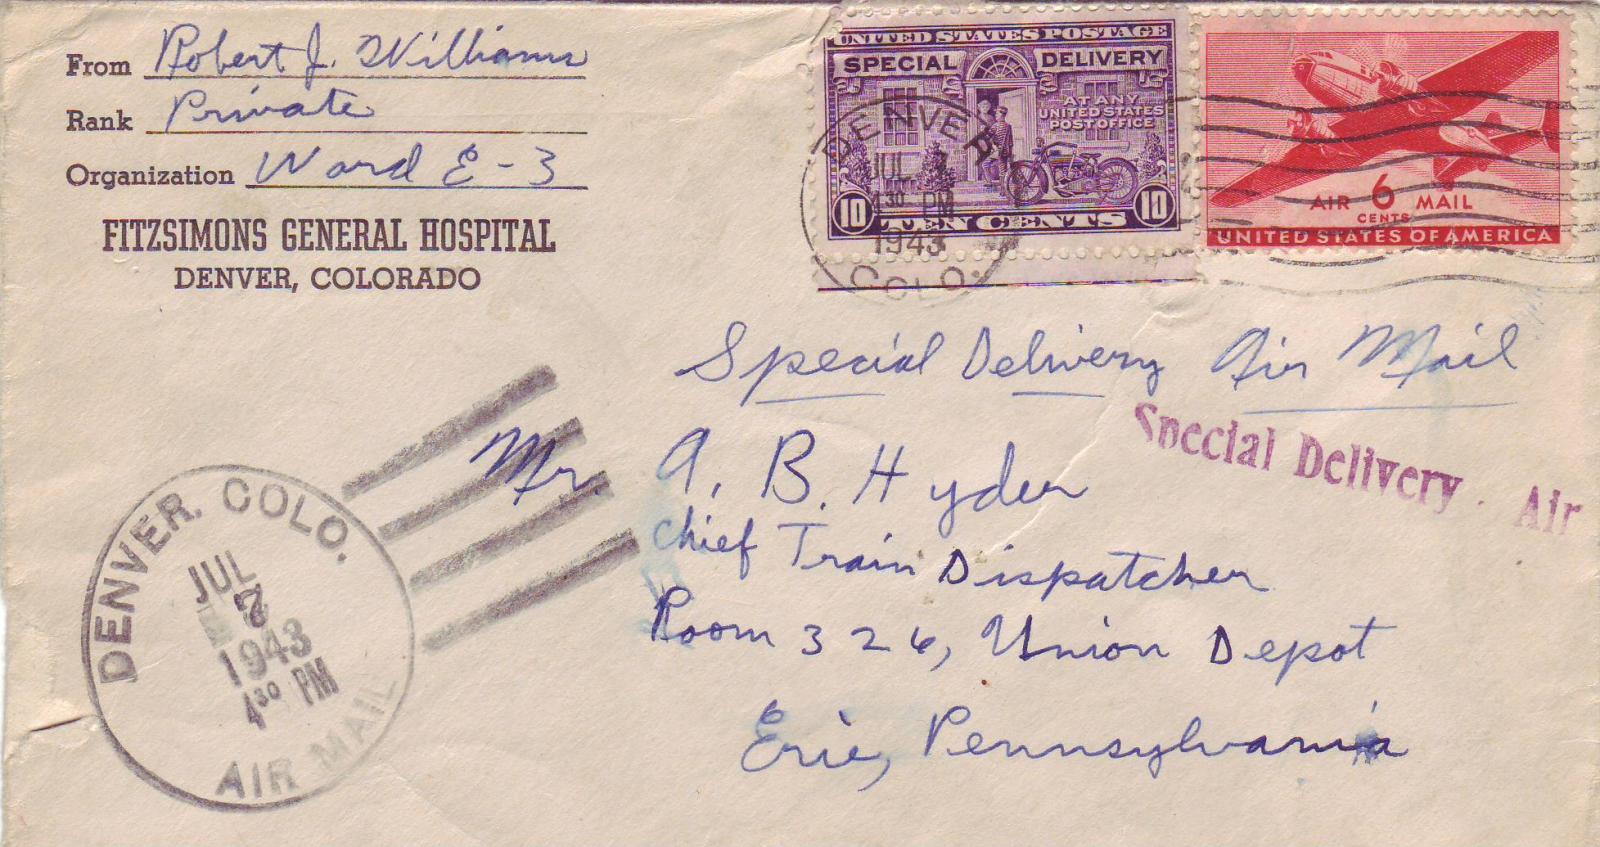 From Robert J. Williams
Rank Private
Organization Ward E-3
FITZSIMONS GENERAL HOSPITAL
DENVER, COLORADO
UNITED STATES POSTAGE
SPECIAL DELIVERY
AT ANY
UNITED STATES
POST OFFICE
10 TEN CENTS 10
AIR 6 MAIL
CENTS
UNITED STATES OF AMERICA
DENVER
JUL 7
4 30 PM
1943
COLO.
Special Delivery Air Mail
Special Delivery . Air
Mr. A. B. Hyder
Chief Train Dispatcher
Room 326, Union Depot
Erie, Pennsylvania
DENVER, COLO.
JUL
7
1943
4 30 PM
AIR MAIL